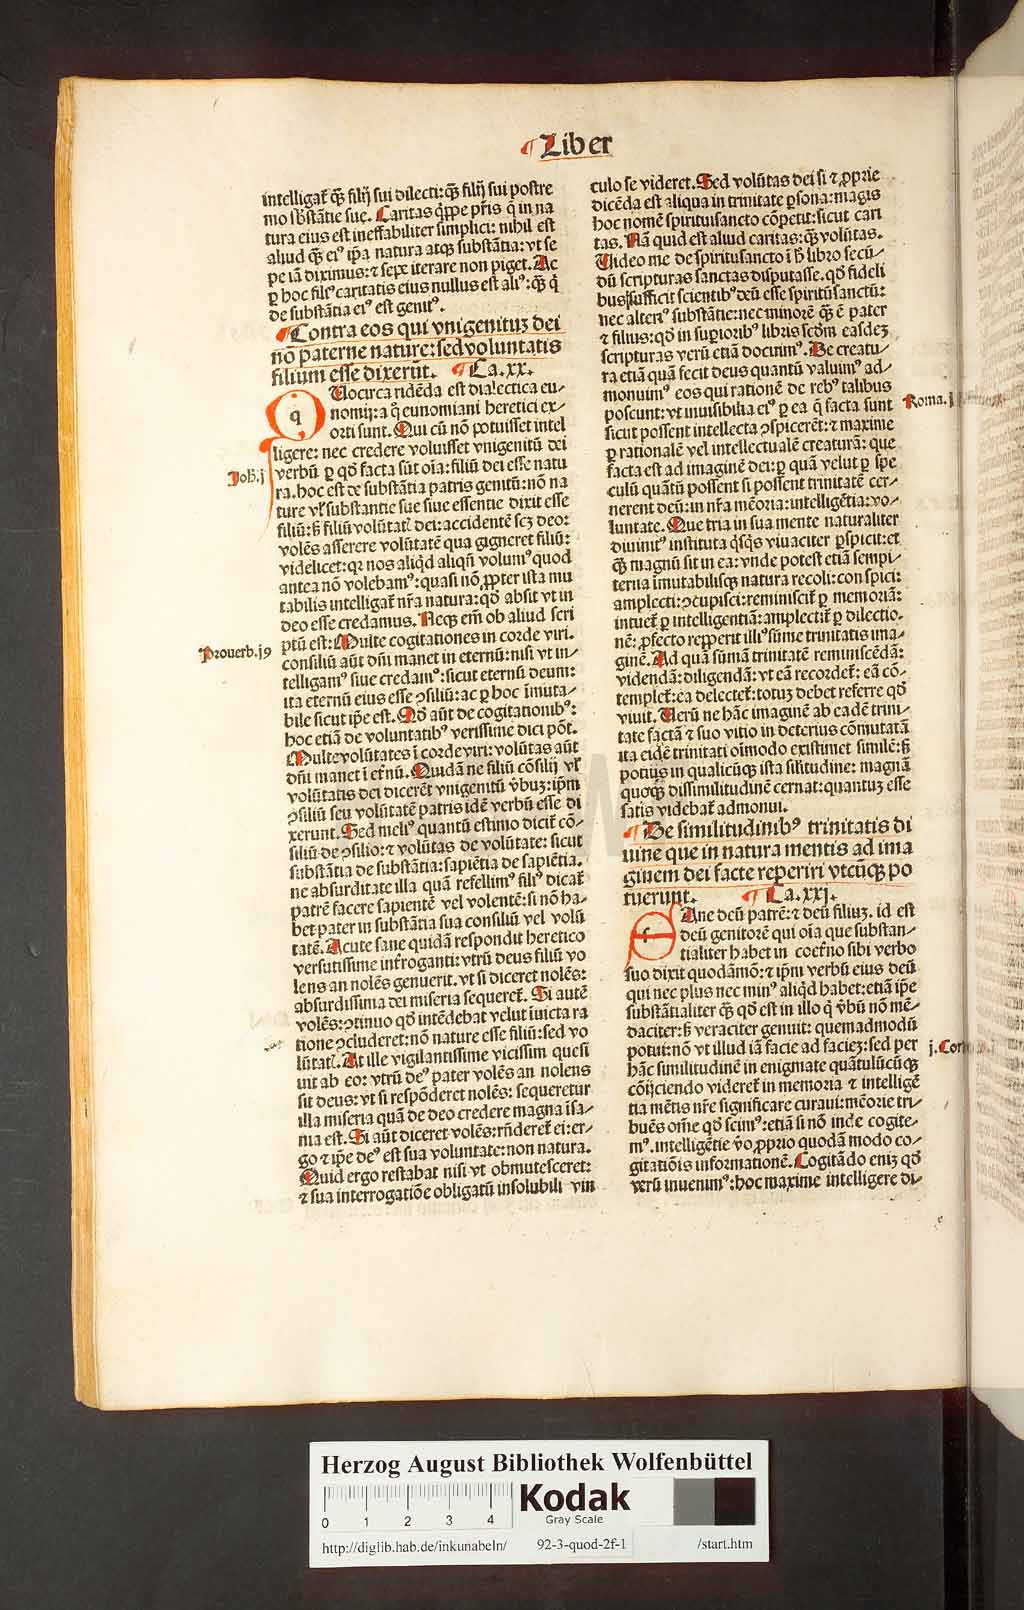 ¶ Liber
intelligat᷑ qͣ filij sui dilecti: qͣ filij sui postre
mo sb̄stātie sue. Caritas q̄ppe pr̄is q̄ in na
tura eius est ineffabiliter simplici: nihil est
aliud qͣ eiꝰ ip̄a natura atqꝫ substātia: vt se
pe iā diximus: ⁊ sepe iterare non piget. Ac
ꝑ hoc filꝰ caritatis eius nullus est aliꝰ: qͣ q̇
de substātia eiꝰ est genitꝰ.
¶ Contra eos qui vnigenituꝫ dei
nō paterne nature: sed voluntatis
filium esse dixerūt. ¶ Ca.xx.
q Uocirca ridēda est dialectica eu⸗
nomij: a q̊ eunomiani heretici ex⸗
orti sunt. Qui cū nō potuisset intel
ligere: nec credere voluisset vnigenitū dei
Joh̄.j
verbū ꝑ qd̄ facta sūt oīa: filiū dei esse natu
ra. hoc est de substātia patris genitū: nō na
ture vl̓ substantie sue siue essentie dixit esse
filiū: ß filiū volūtat᷑ dei: accidentē scꝫ deo:
volēs asserere volūtatē qua gigneret filiū:
videlicet: qꝛ nos aliq̇d aliqn̄ volumꝰ quod
antea nō volebamꝰ: quasi nō ꝓpter ista mu
tabilis intelligat᷑ nr̄a natura: qd̄ absit vt in
deo esse credamus. Neqꝫ em̄ ob aliud scri
ptū est: Multe cogitationes in corde viri.
Prouerb.j9
consiliū aūt dn̄i manet in eternū: nisi vt in⸗
telligamꝰ siue credamꝰ: sicut eternū deum:
ita eternū eius esse ꝯsiliū: ac ꝑ hoc īmuta⸗
bile sicut ip̄e est. Qd̄ aūt de cogitationibꝰ:
hoc etiā de voluntatibꝰ verissime dici pōt.
Multe volūtates ī corde viri: volūtas aūt
dn̄i manet ī et̓nū. Quidā ne filiū cōsilij vl̓
volūtatis dei dicerēt vnigenitū v̓buꝫ: ip̄m
ꝯsiliū seu volūtatē patris idē verbū esse di
xerunt. Sed meliꝰ quantū estimo dicit᷑ cō⸗
siliū de ꝯsilio: ⁊ volūtas de volūtate: sicut
substātia de substātia: sapiētia de sapiētia.
ne absurditate illa quā refellimꝰ filiꝰ dicat᷑
patrē facere sapientē vel volentē: si nō ha⸗
bet pater in substātia sua consiliū vel volū
tatē. Acute sane quidā respondit heretico
versutissime int̓roganti: vtrū deus filiū vo
lens an nolēs genuerit. vt si diceret nolēs:
absurdissima dei miseria sequeret᷑. Si autē
volēs: ꝯtinuo qd̄ intēdebat velut īuicta ra
tione ꝯcluderet: nō nature esse filiū: sed vo
lūtat᷑. At ille vigilantissime vicissim quesi
uit ab eo: vtrū deꝰ pater volēs an nolens
sit deus: vt si respōderet nolēs: sequeretur
illa miseria quā de deo credere magna īsa⸗
nia est. Si aūt diceret volēs: rn̄deret᷑ ei: er⸗
go ⁊ ip̄e deꝰ est sua voluntate: non natura.
Quid ergo restabat nisi vt obmutesceret:
⁊ sua interrogatiōe obligatū insolubili vin
culo se videret. Sed volūtas dei si ⁊ ꝓprie
dicēda est aliqua in trinitate ꝑsona: magis
hoc nomē spirituisancto cōpetit: sicut cari
tas. Nā quid est aliud caritas: qͣ volūtas.
Uideo me de spiritusancto ī ß libro secū⸗
dū scripturas sanctas disputasse. qd̄ fideli
bus sufficit scientibꝰ deū esse spiritū sanctū:
nec alteriꝰ substātie: nec minorē qͣ ē pater
⁊ filius: qd̄ in supioribꝰ libris scd̄m easdeꝫ
scripturas verū etiā docuimꝰ. De creatu⸗
ra etiā quā fecit deus quantū valuimꝰ ad⸗
monuimꝰ eos qui rationē de rebꝰ talibus
poscunt: vt inuisibilia eiꝰ ꝑ ea q̄ facta sunt
Roma.j
sicut possent intellecta ꝯspicerēt: ⁊ maxime
ꝑ rationalē vel intellectualē creaturā: que
facta est ad imaginē dei: ꝑ quā velut ꝑ spe
culū quātū possent si possent trinitatē cer⸗
nerent deū: in nr̄a mēoria: intelligētia: vo⸗
luntate. Que tria in sua mente naturaliter
diuinitꝰ instituta q̇sqs viuaciter ꝑspicit: et
qͣ magnū sit in ea: vnde potest etiā sempi⸗
terna īmutabilisqꝫ natura recoli: conspici:
amplecti: ꝯcupisci: reminiscit᷑ ꝑ memoriā:
intuet᷑ ꝑ intelligentiā: amplectit᷑ ꝑ dilectio⸗
nē: ꝓfecto repperit illiꝰ sūme trinitatis ima⸗
ginē. Ad quā sūmā trinitatē reminiscēdā:
videndā: diligendā: vt eā recordet᷑: eā cō⸗
templet᷑: ea delectet᷑: totuꝫ debet referre qd̄
viuit. Uerū ne hāc imaginē ab eadē trini⸗
tate factā ⁊ suo vitio in deterius cōmutatā
ita eidē trinitati oīmodo existimet similē: ß
potius in qualicūqꝫ ista sil̓itudine: magnā
quoqꝫ dissimilitudinē cernat: quantuꝫ esse
satis videbat᷑ admonui.
¶ De similitudinibꝰ trinitatis di
uine que in natura mentis ad ima
ginem dei facte reperiri vtcūqꝫ po
tuerunt. ¶ Ca.xxj.
s Ane deū patrē: ⁊ deū filiuꝫ. id est
deū genitorē qui oīa que substan⸗
tialiter habet in coet̓no sibi verbo
suo dixit quodāmō: ⁊ ip̄m verbū eius deū
qui nec plus nec minꝰ aliq̇d habet: etiā ip̄e
substātialiter qͣ qd̄ est in illo q̇ v̓bū nō mē⸗
daciter: ß veraciter genuit: quemadmodū
potui: nō vt illud iā facie ad facieꝫ: sed per
j. Cor
hāc similitudinē in enigmate quātulūcūqꝫ
cōijciendo videret᷑ in memoria ⁊ intelligē
tia mētis nr̄e significare curaui: mēorie tri⸗
buēs om̄e qd̄ scimꝰ: etiā si nō inde cogite⸗
mꝰ. intelligētie v̓o ꝓprio quodā modo co⸗
gitatiōis informationē. Cogitādo eniꝫ qd̄
verū inuenimꝰ: hoc maxime intelligere di⸗
Herzog August Bibliothek Wolfenbüttel
0 1 2 3 4
Kodak
Gray Scale
http://diglib.hab.de/inkunabeln/ 92-3-quod-2f-1 /start.htm